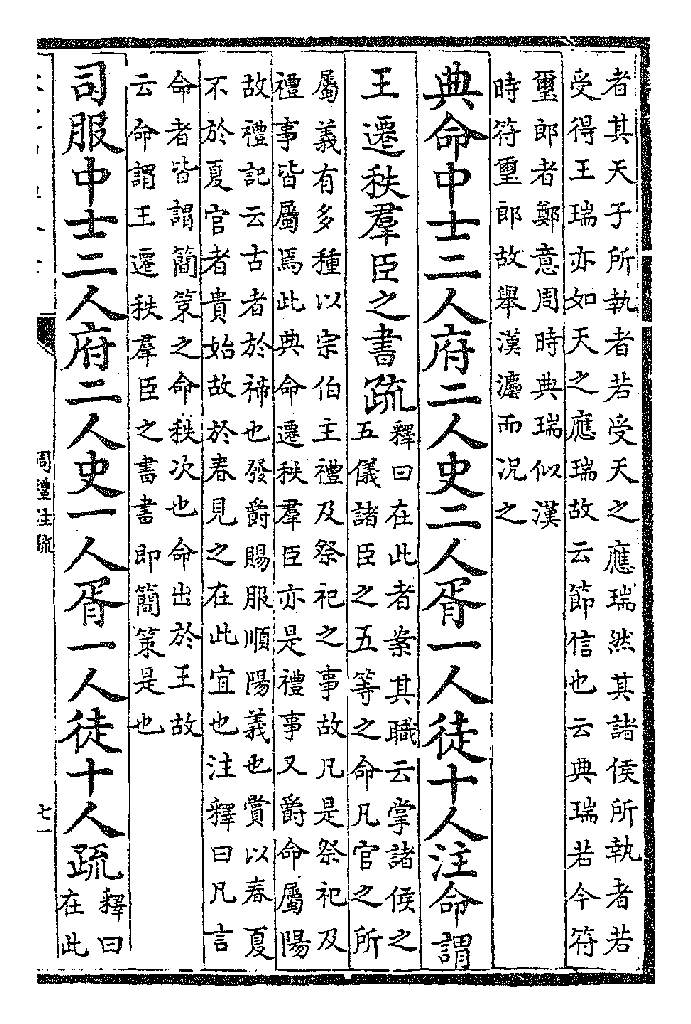 者其天子所執者若受天之應瑞然其諸侯所執者若
受得王瑞亦如天之應瑞故云節信也云典瑞若今符
璽郎者鄭意周時典瑞似漢
時符璽郎故舉漢灋而況之
典命中士二人府二人史二人胥一人徒十人注命謂
王遷秩羣臣之書疏
釋曰在此者案其職云掌諸侯之
五儀諸臣之五等之命凡官之所
屬義有多種以宗伯主禮及祭祀之事故凡是祭祀及
禮事皆屬焉此典命遷秩羣臣亦是禮事又爵命屬陽
故禮記云古者於禘也發爵賜服順陽義也賞以春夏
不於夏官者貴始故於春見之在此宜也注釋曰凡言
命者皆謂簡策之命秩次也命出於王故
云命謂王遷秩羣臣之書書即簡策是也
司服中士二人府二人史一人胥一人徒十人疏
釋曰
在此
周禮注疏
七一